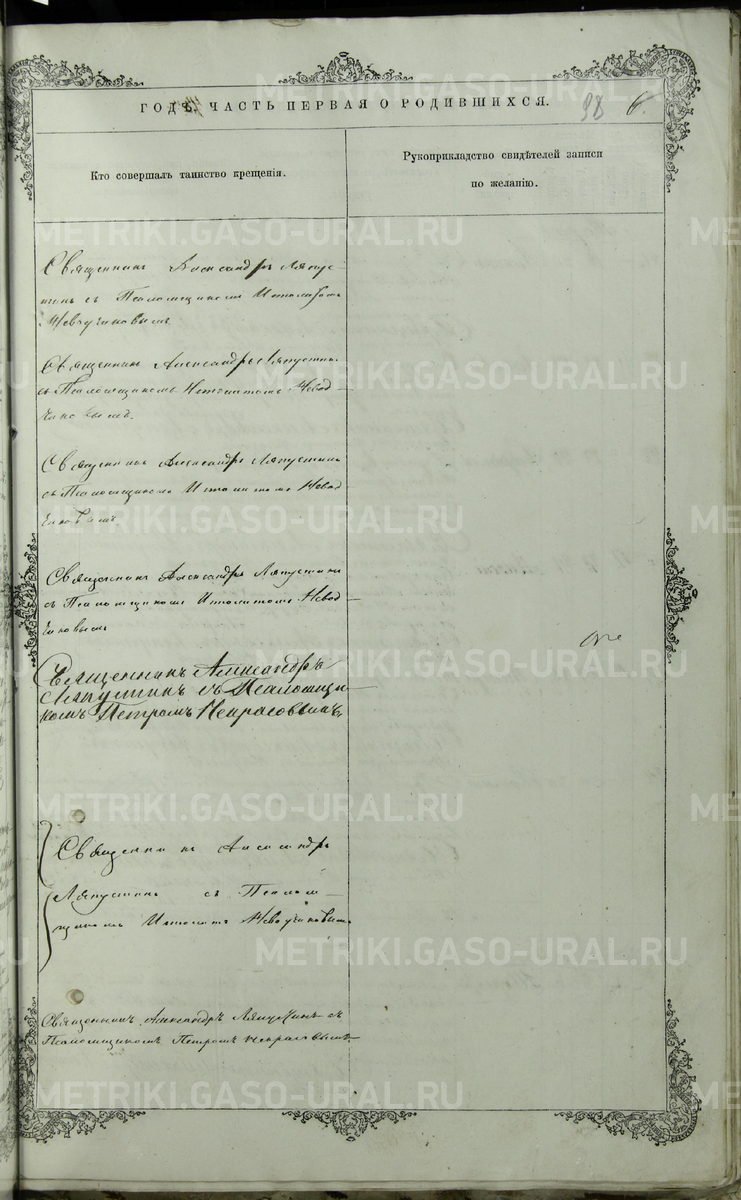 ГОДЪ, ЧАСТЬ ПЕРВАЯ О РОДИВШИХСЯ.
98 6.
Кто совершалъ таинство крещенія.
Рукоприкладство свидѣтелей записи
по желанію.
Священникъ Александръ Ляпус-
тинъ съ Псаломщикомъ
Священникъ Александръ Ляпустинъ
съ Псаломщикомъ Иполитомъ Невод-
чиковымъ.
Священникъ Александръ Ляпустинъ
съ Псаломщикомъ Иполитомъ Невод
чиковымъ
Священникъ Александръ Ляпустинъ
съ Псаломщикомъ Иполитомъ Невод-
чиковымъ
Священникъ Александръ
Ляпустинъ съ Псаломщи-
комъ Петромъ Некрасовымъ
Священникъ Александръ
Ляпустинъ съ Псалом-
щикомъ Неводчиковымъ
Священникъ Александръ Ляпустинъ съ
Псаломщикомъ Петромъ Некрасовымъ
METRIKI.GASO-URAL.RU